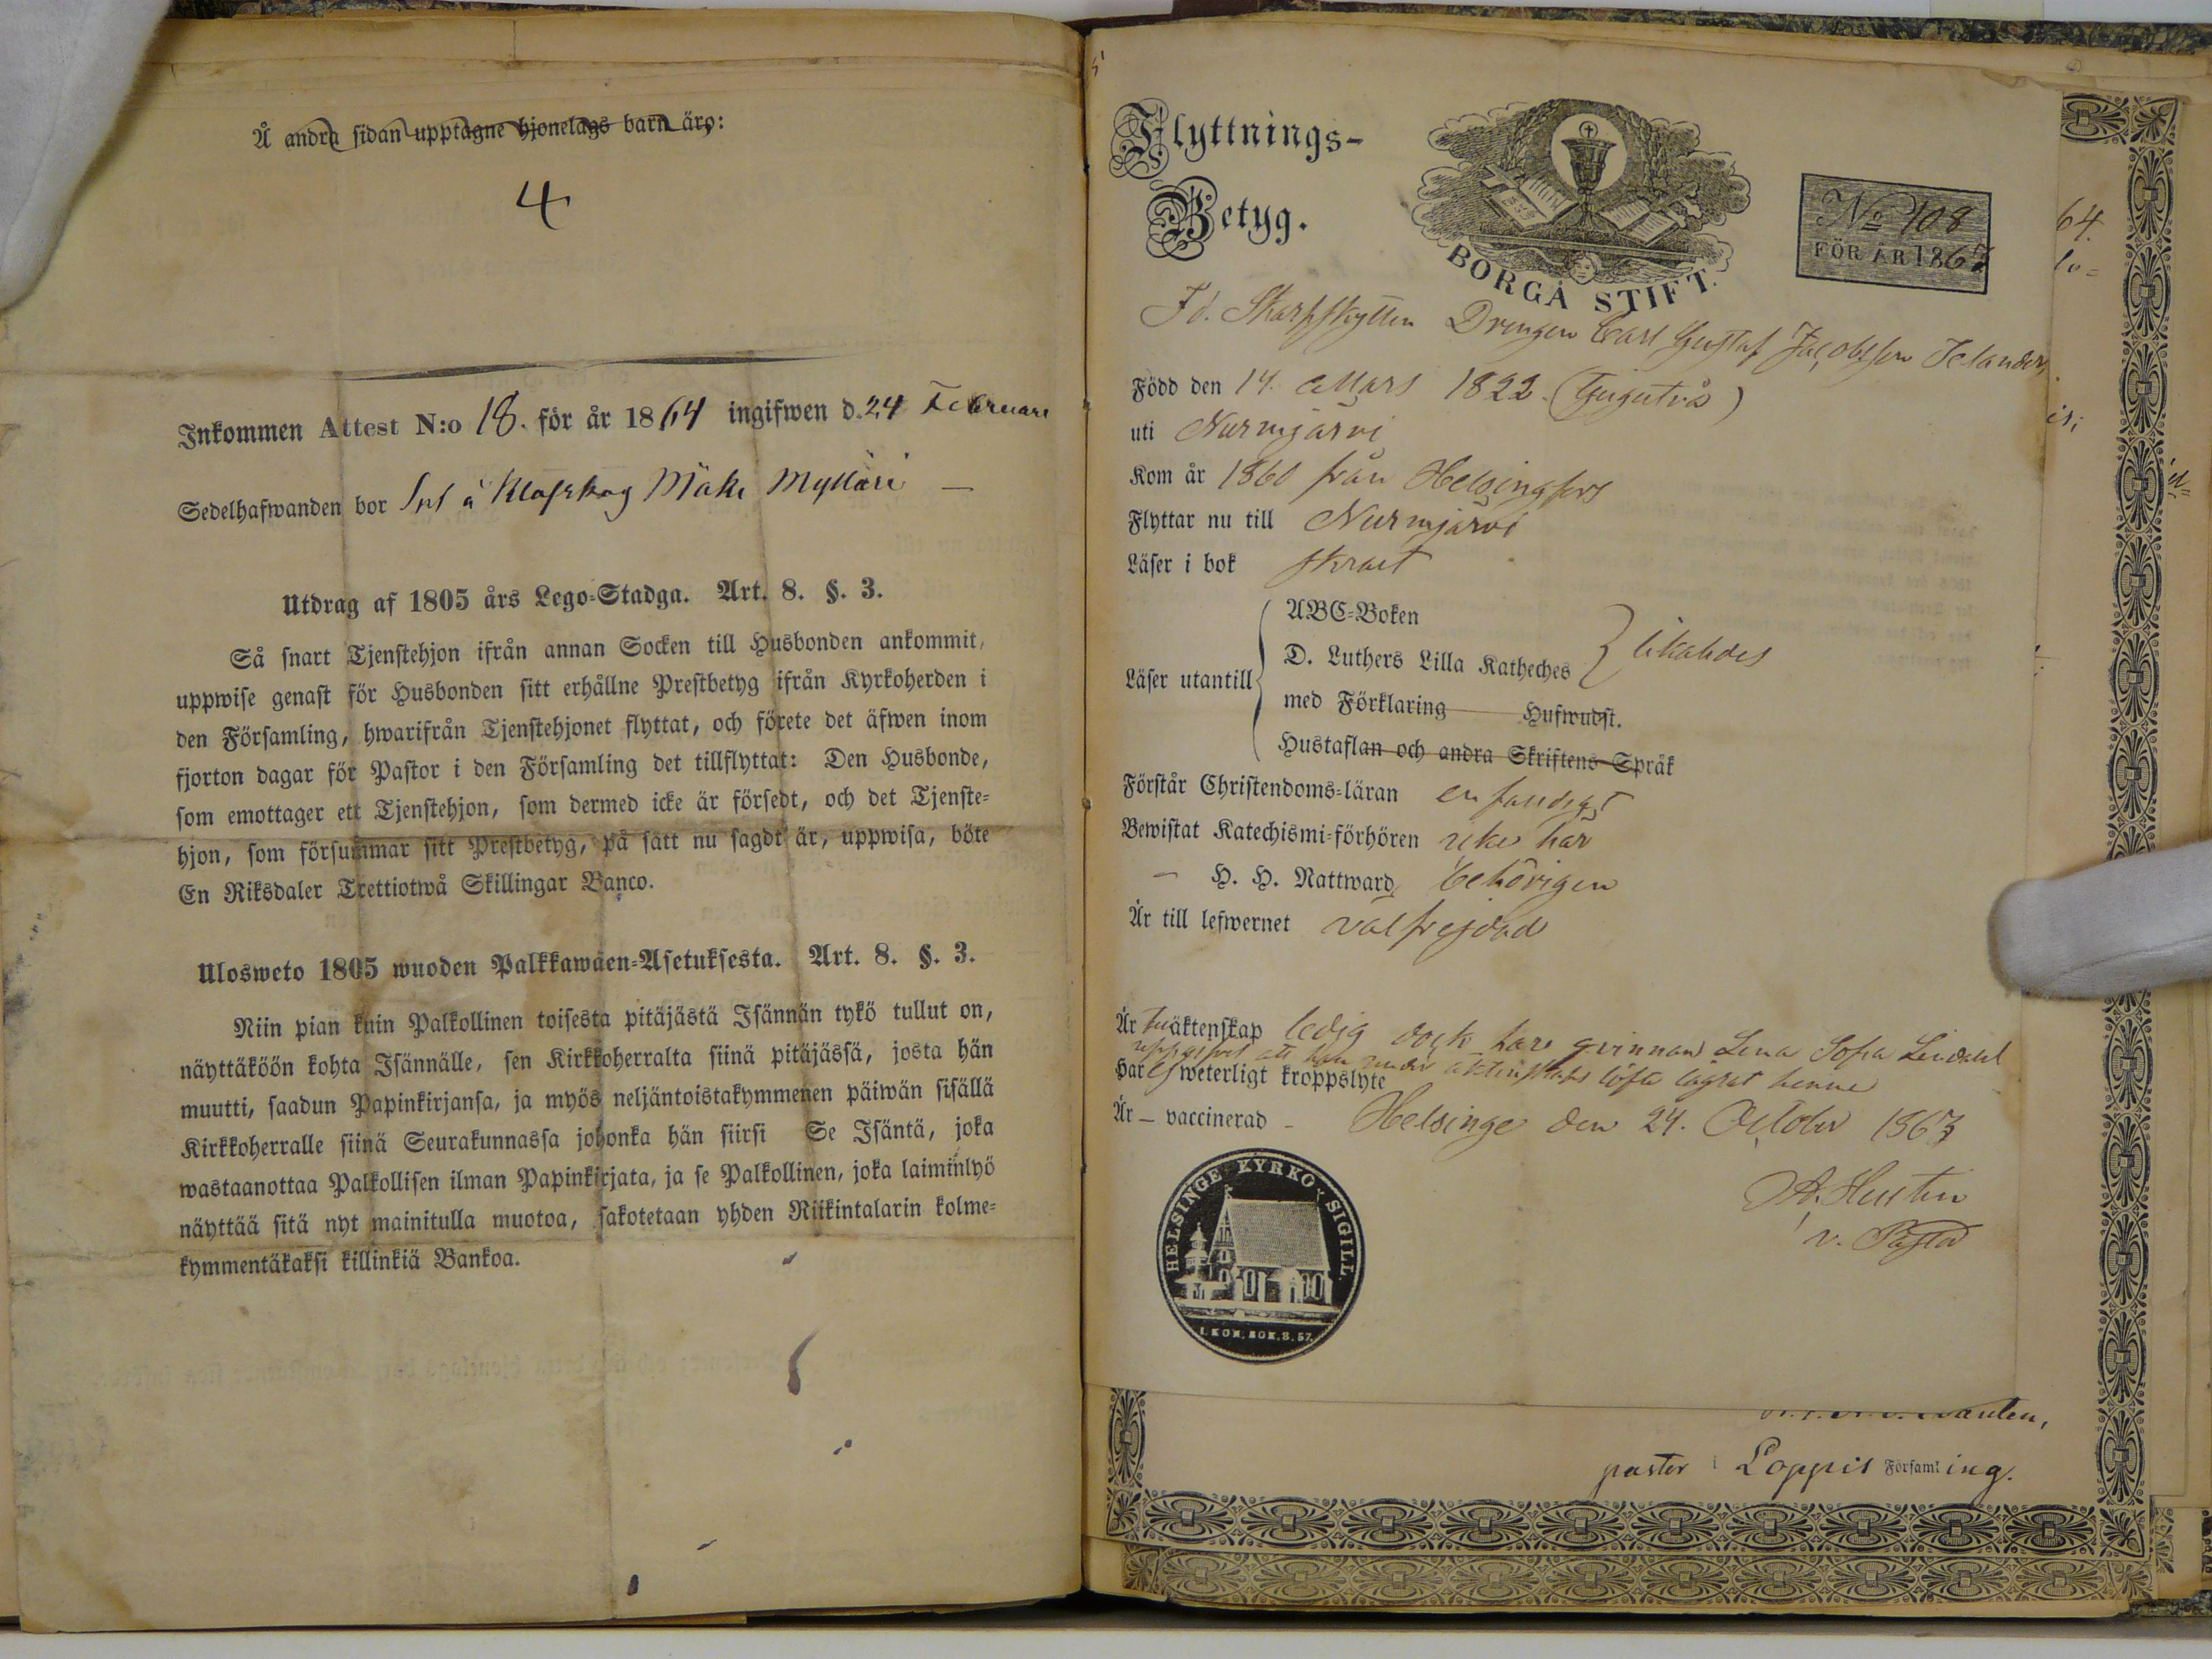 Å andra sidan upptagne hjonelags barn äro:
4
Inkommen Attest N:o 18. för år 1864 ingifwen d. 24 Februari
Sedelhafwanden bor Inh å Klafskog Mäki Mylläri
Utdrag af 1805 års Lego-Stadga. Art. 8. §. 3.
Så snart Tjenstehjon ifrån annan Socken till Husbonden ankommit,
uppwise genast för Husbonden sitt erhållne Prestbetyg ifrån Kyrkoherden i
den Församling, hwarifrån Tjenstehjonet flyttat, och förete det äfwen inom
fjorton dagar för Pastor i den Församling det tillflyttat: Den Husbonde,
som emottager ett Tjenstehjon, som dermed icke är försedt, och det Tjenste-
hjon, som försummar sitt Prestbetyg, på sätt nu sagdt är, uppwisa, böte
En Riksdaler Trettiotwå Skillingar Banco.
Ulosweto 1805 wuoden Palkkawäen-Asetuksesta. Art. 8. §. 3.
Niin pian kuin Palkollinen toisesta pitäjästä Isännän tykö tullut on,
näyttäköön kohta Isännälle, sen Kirkkoherralta siinä pitäjässä, josta hän
muutti, saadun Papinkirjansa, ja myös neljäntoistakymmenen päiwän sisällä
Kirkkoherralle siinä Seurakunnassa johonka hän siirsi Se Isäntä, joka
wastaanottaa Palkollisen ilman Papinkirjata, ja se Palkollinen, joka laiminlyö
näyttää sitä nyt mainitulla muotoa, sakotetaan yhden Riikintalarin kolme-
kymmentäkaksi killinkiä Bankoa.
Flyttnings-
Betyg.
BORGÅ STIFT.
No 108
FÖR ÅR 1863
Fd. Skarpskytten Drengen Carl Gustaf Jacobsson Selander,
Född den 14. Mars 1822. (tjugutvå)
uti Nurmijärvi
Kom år 1860 från Helsingfors
Flyttar nu till Nurmijärvi
Läser i bok svart
Läser utantill
ABC-Boken
D. Luthers Lilla Katheches
likaledes
med Förklaring Hufwudst.
Hustaflan och andra Skriftens Språk
Förstår Christendoms-läran enfaldigt
Bewistat Katechismi-förhören icke här
— H. H. Nattward behörigen
Är till lefwernet välfrejdad
Är till äktenskap ledig dock har qvinnan Lena Sofia Lindahl
uppgifvet att han under äktenskaps löfte lägrat henne
Har ej weterligt kroppslyte
Är — vaccinerad — Helsinge den 24. October 1863
A. Hustin
v. Pastor
HELSINGE KYRKO SIGILL.
I. KON. BOK. 8. 57.
pastor i Loppis Församling.
64.